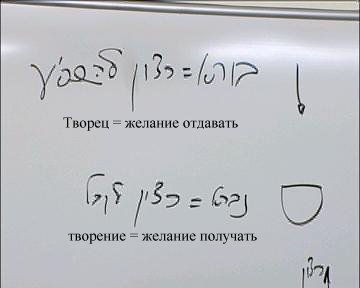 בורא = רצון להשפיע
Творец = желание отдавать
נברא = רצון לקבל
творение = желание получать
רצון